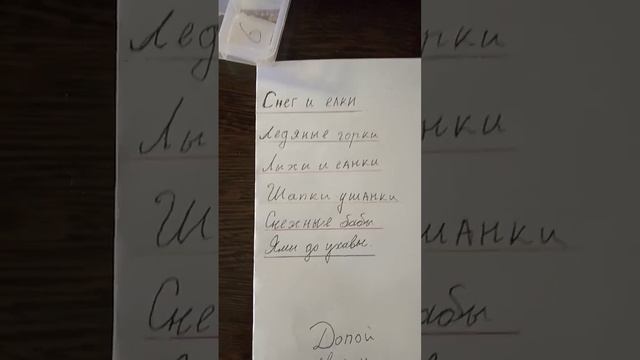 6
Снег и елки
Ледяные горки
Лыжи и санки
Шапки ушанки
Снежные бабы
Ямы до ухабы.
Допой